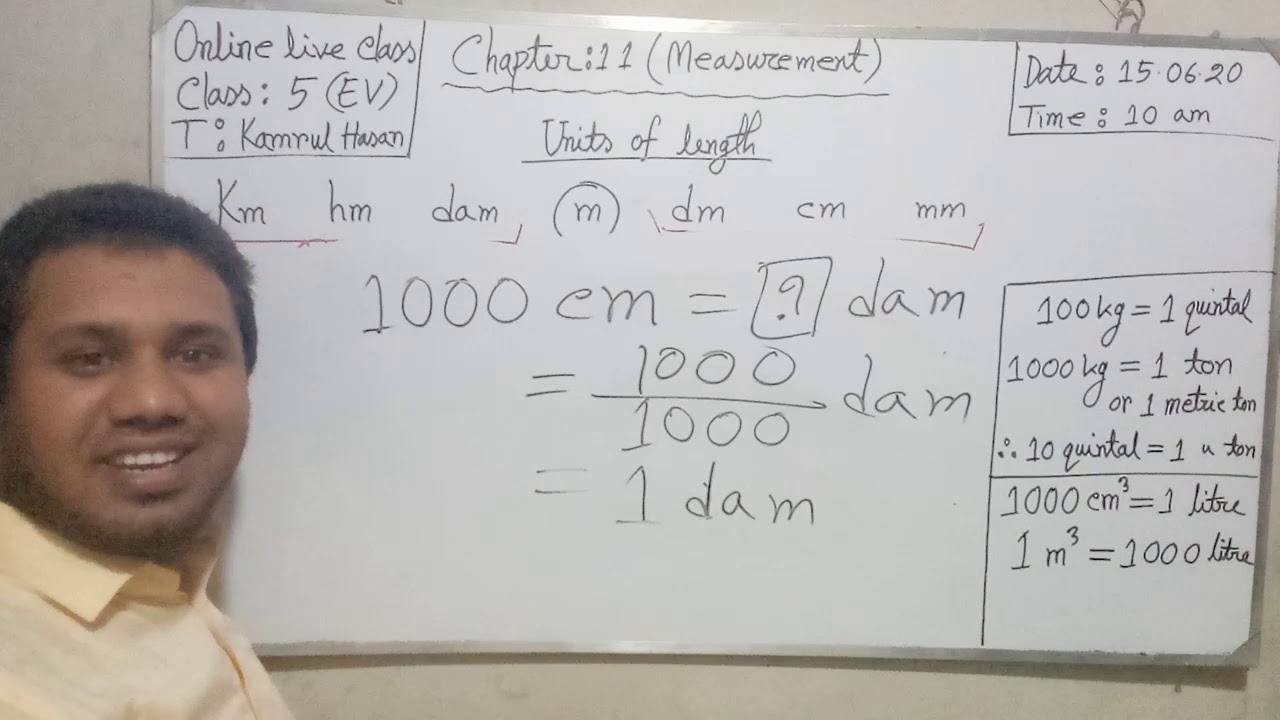 Online live class
Class: 5 (EV)
T: Kamrul Hasan
Chapter:11 (Measurement)
Date: 15.06.20
Time: 10 am
Units of length
Km hm dam (m) dm cm mm
1000 cm = ? dam
= 1000/1000 dam
= 1 dam
100 kg = 1 quintal
1000 kg = 1 ton
or 1 metric ton
∴ 10 quintal = 1 u ton
1000 cm³ = 1 litre
1 m³ = 1000 litre